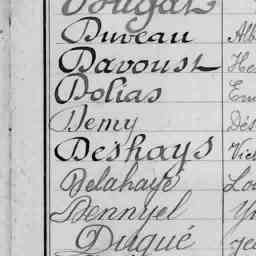 Duveau Alb
Davoust He
Dolias Em
Demy Dés
Deshays Vict
Delahaye Lou
Dennyel
Dugué